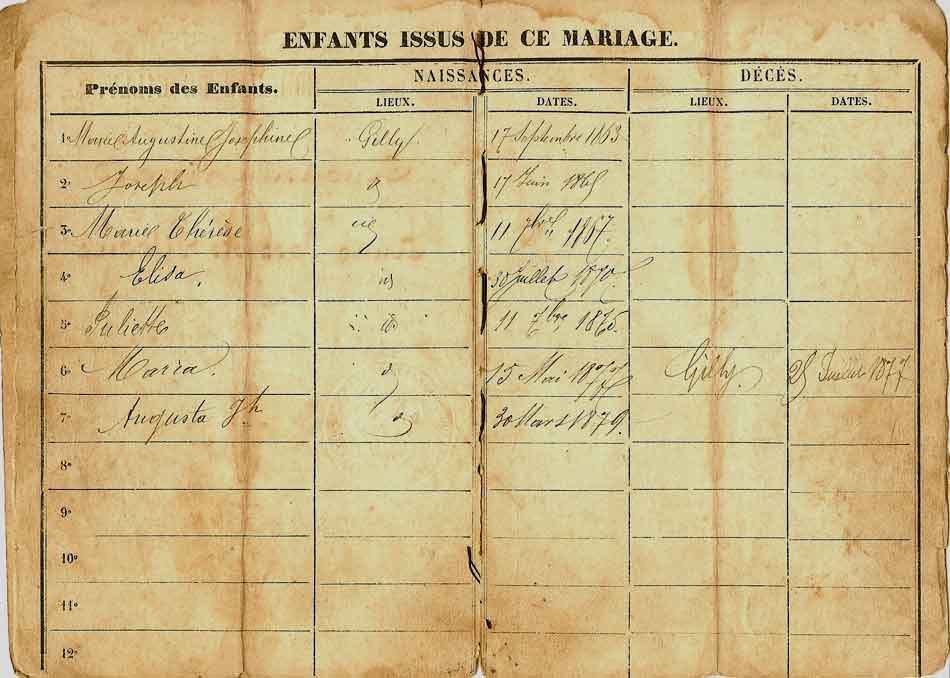 ENFANTS ISSUS DE CE MARIAGE.
Prénoms des Enfants. NAISSANCES. DÉCÈS.
LIEUX. DATES. LIEUX. DATES.
1° Marie Augustine Josephine Gilly 17 Septembre 1863
2° Joseph d 17 Juin 1865
3° Marie Thérèse 11 7bre 1867.
4° Elisa. id 30 Juillet 1870
5° Juliette id 11 7bre 1875.
6° Maria. d 15 Mai 1877 Gilly. 25 Juillet 1877
7° Augusta Jh d 30 Mars 1879.
8°
9°
10°
11°
12°